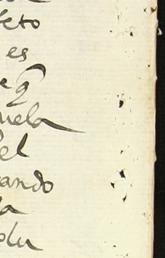 feto
es
e q
uela
el
ando
la
olu